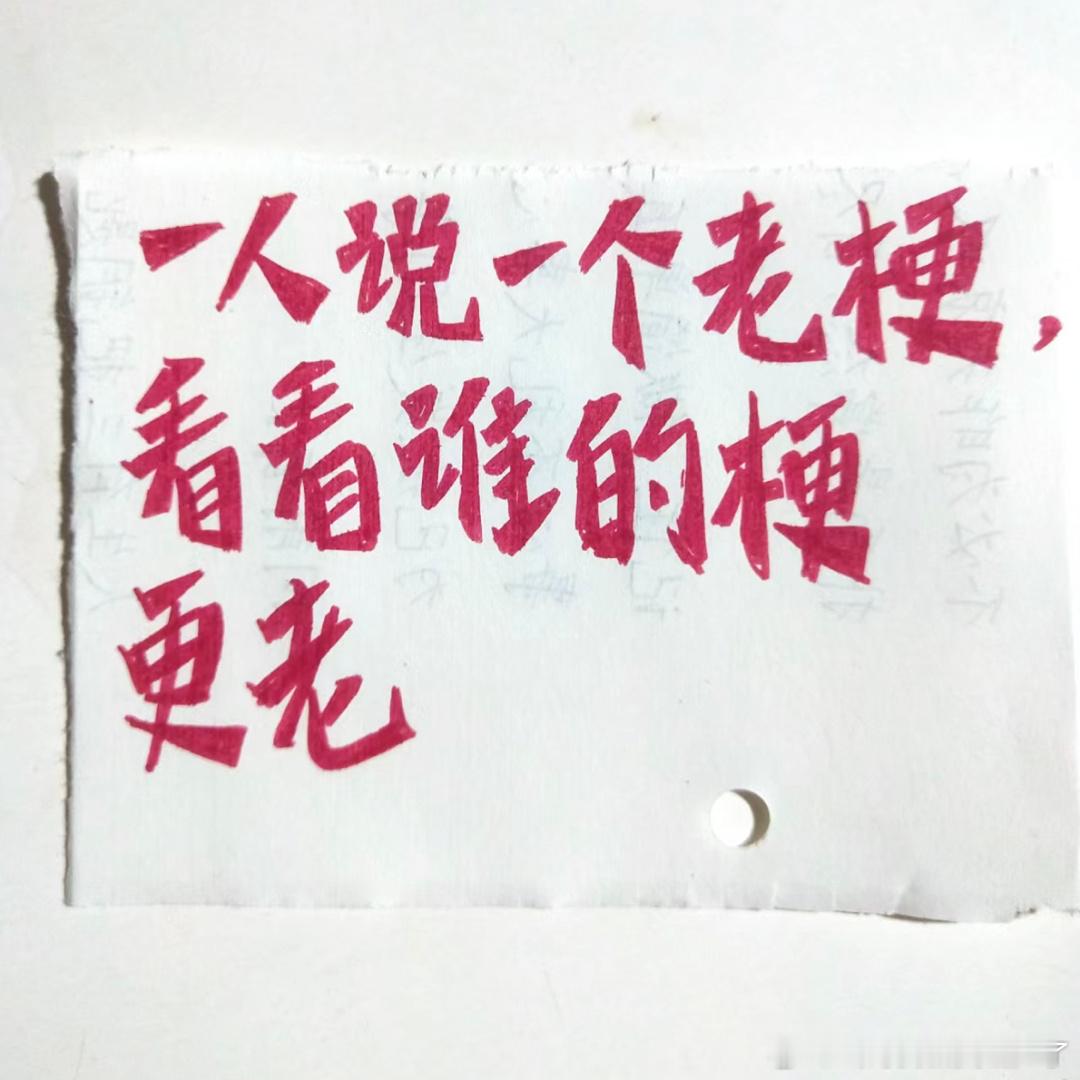 一人说一个老梗,
看看谁的梗
更老